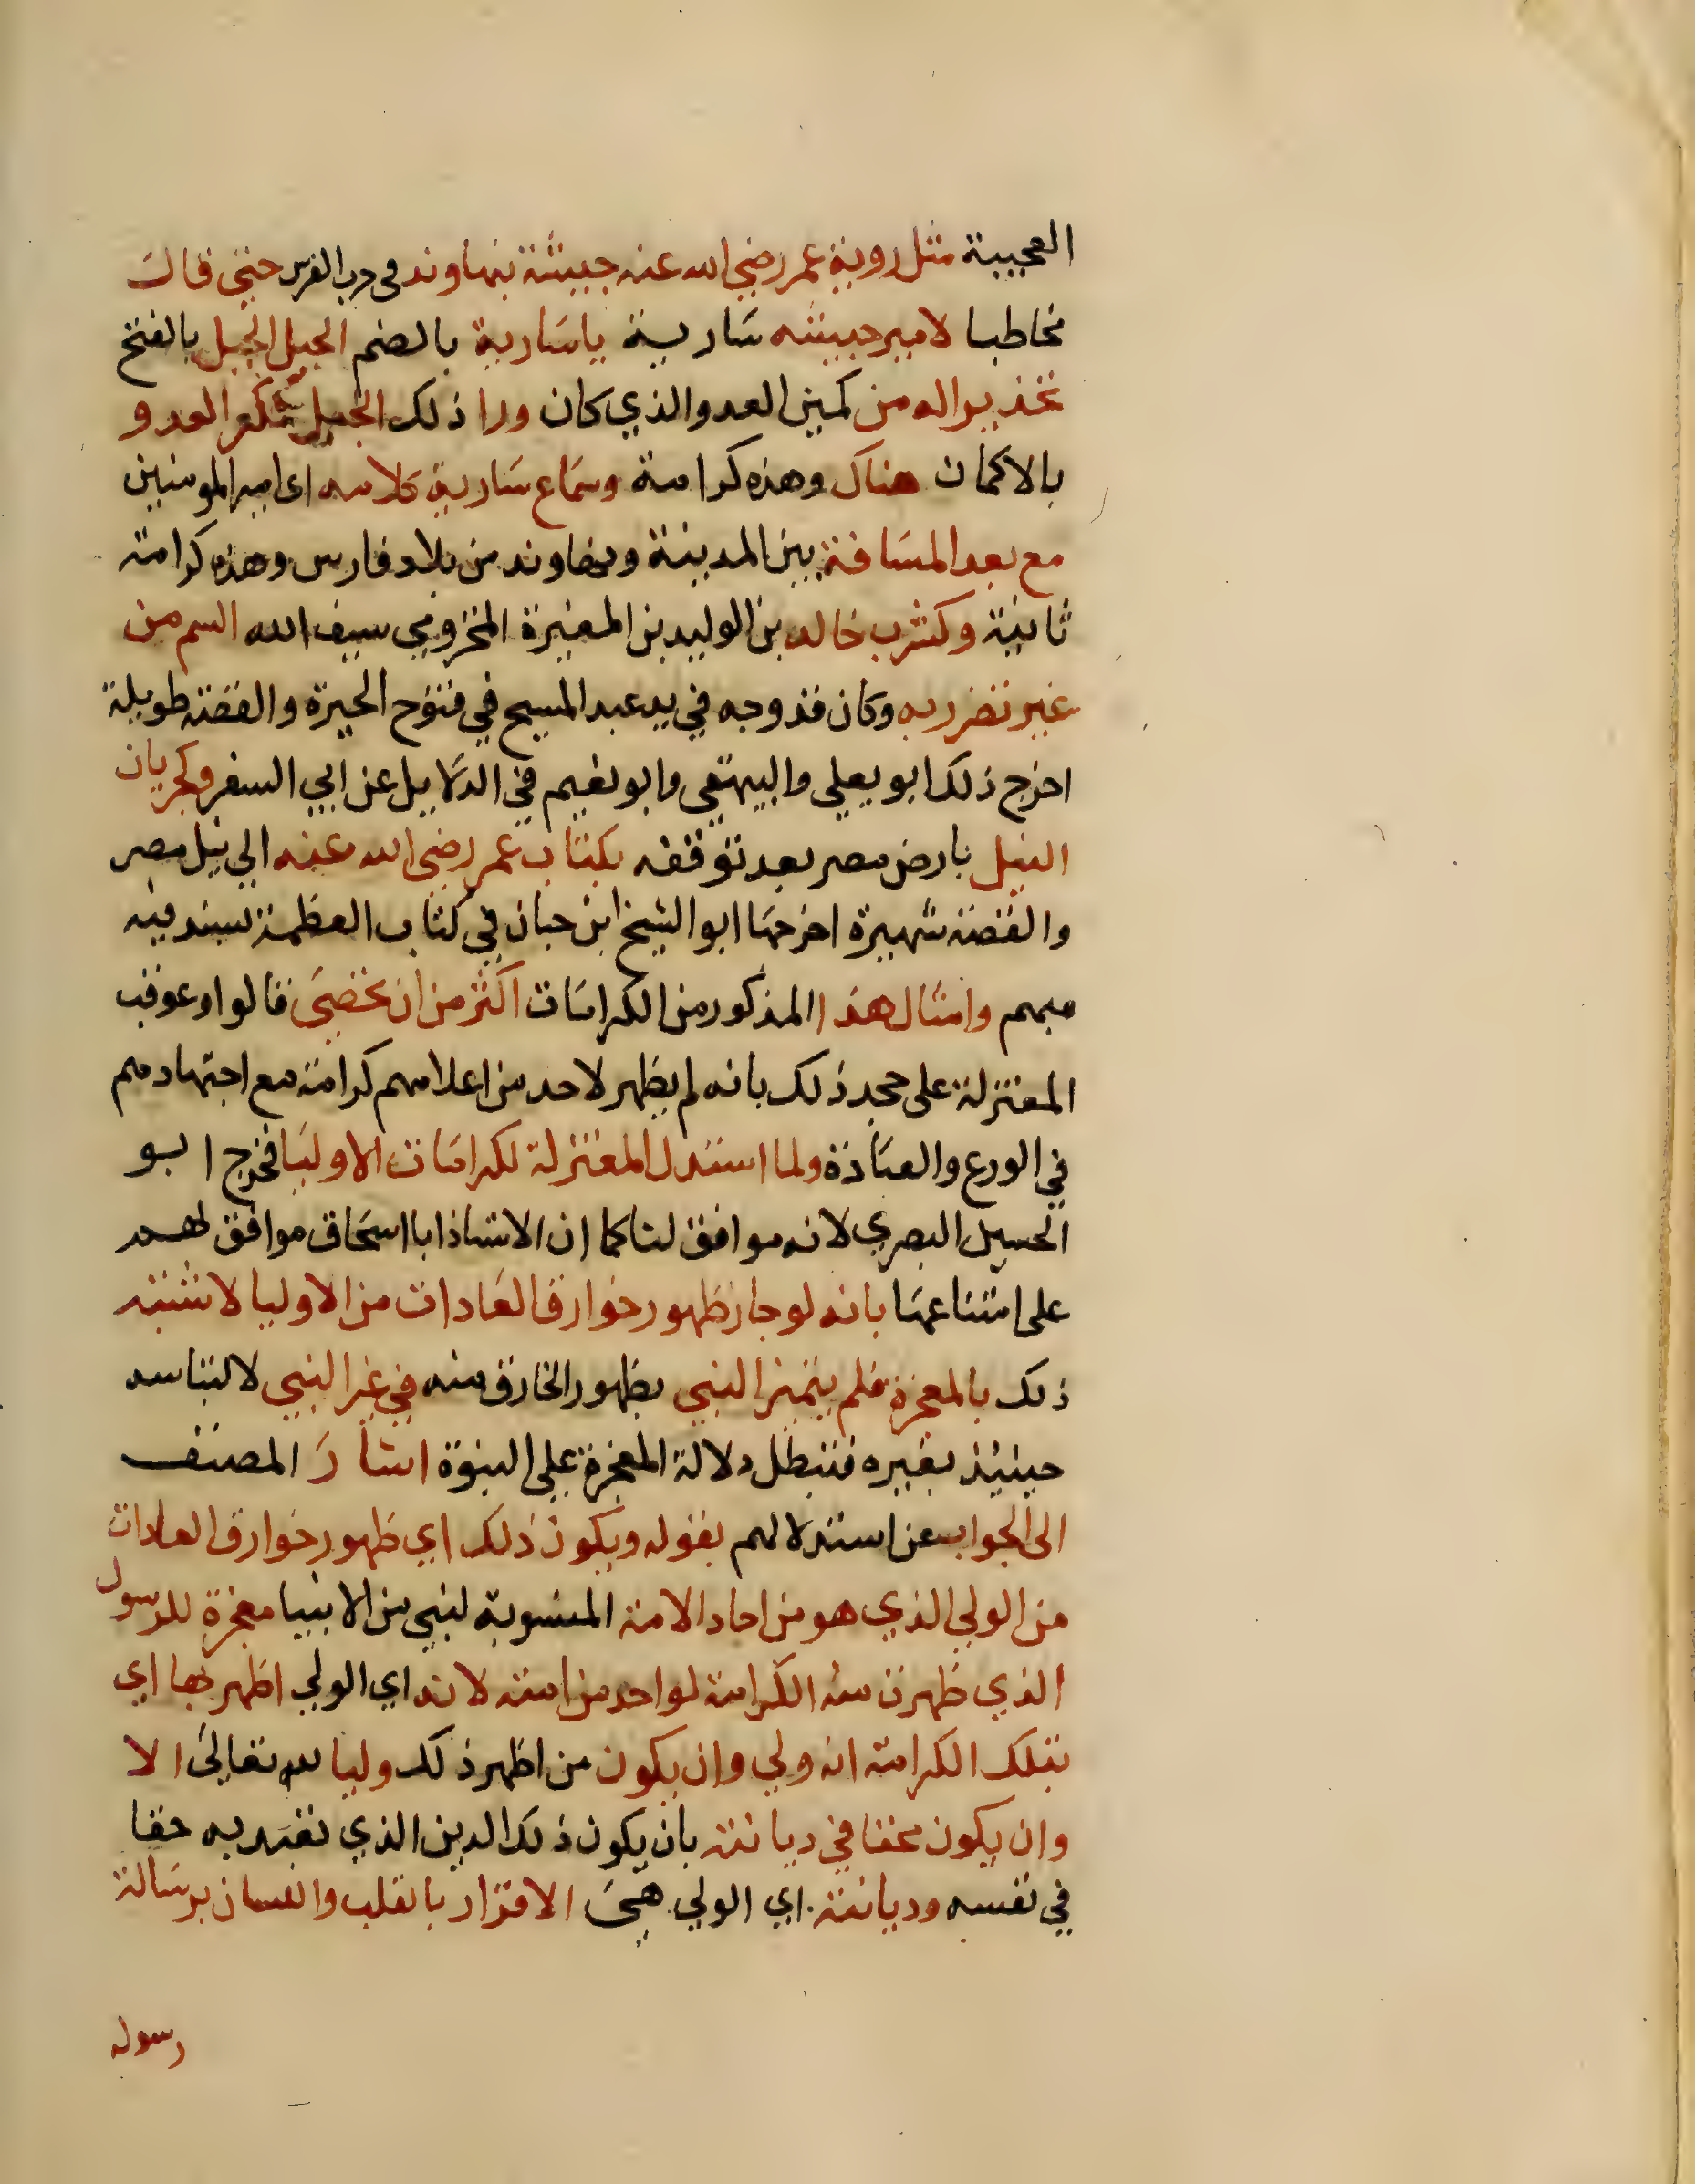 العجيبة مثل روية عمر رضي الله عنه جيشة بنهاوند في حرب الفرس حتى قال
مخاطبا لامير جيشه سارية يا سارية بالضم الجبل الجبل بالفتح
تحذيرا له من كمين العدو الذي كان ورا ذلك الجبل لمكر العدو
بالاكمان هناك وهذه كرامة وسماع سارية كلامه اى امير المومنين
مع بعد المسافة بين المدينة ونهاوند من بلاد فارس وهذه كرامة
ثانية وكشرب خالد بن الوليد بن المغيرة المخزومي سيف الله السم من
غير تضرر به وكان قد وجه في يد عبد المسيح في فتوح الحيرة والقصة طويلة
اخرج ذلك ابو يعلي والبيهقي وابو نعيم في الدلايل عن ابي السفر وكجريان
النيل بارض مصر بعد توقفه بكتاب عمر رضي الله عنه الي نيل مصر
والقصة شهيرة اخرجها ابو الشيخ ابن حبان في كتاب العظمة بسند فيه
مبهم وامثال هذا المذكور من الكرامات اكثر من ان تحصى قالوا وعوقب
المعتزلة على جحد ذلك بانه لم يظهر لاحد من اعلامهم كرامة مع اجتهادهم
في الورع والعبادة ولما استدل المعتزلة لكرامات الاوليا فخرج ابو
الحسين البصري لانه موافق لنا كما ان الاستاذ ابا اسحاق موافق لهم
على امتناعها بانه لو جاز ظهور خوارق العادات من الاوليا لاشتبه
ذلك بالمعجزة فلم يتميز النبي بظهور الخارق منه في غير النبي لالتباسه
حينيذ بغيره فتبطل دلالة المعجزة على النبوة اشار المصنف
الى الجواب عن استدلالهم بقوله ويكون ذلك اي ظهور خوارق العادات
من الولي الذي هو من احاد الامة المنسوبة لنبي من الانبيا معجزة للرسول
الذي ظهرت منه الكرامة لواحد من امته لانه اي الولي اظهر بها اي
بتلك الكرامة انه ولي وان يكون من اظهر ذلك وليا لله تعالى الا
وان يكون محقا في ديانته بان يكون ذلك الدين الذي تعبد به حقا
في نفسه وديانته اي الولي هي الاقرار بالقلب واللسان برسالة
رسوله